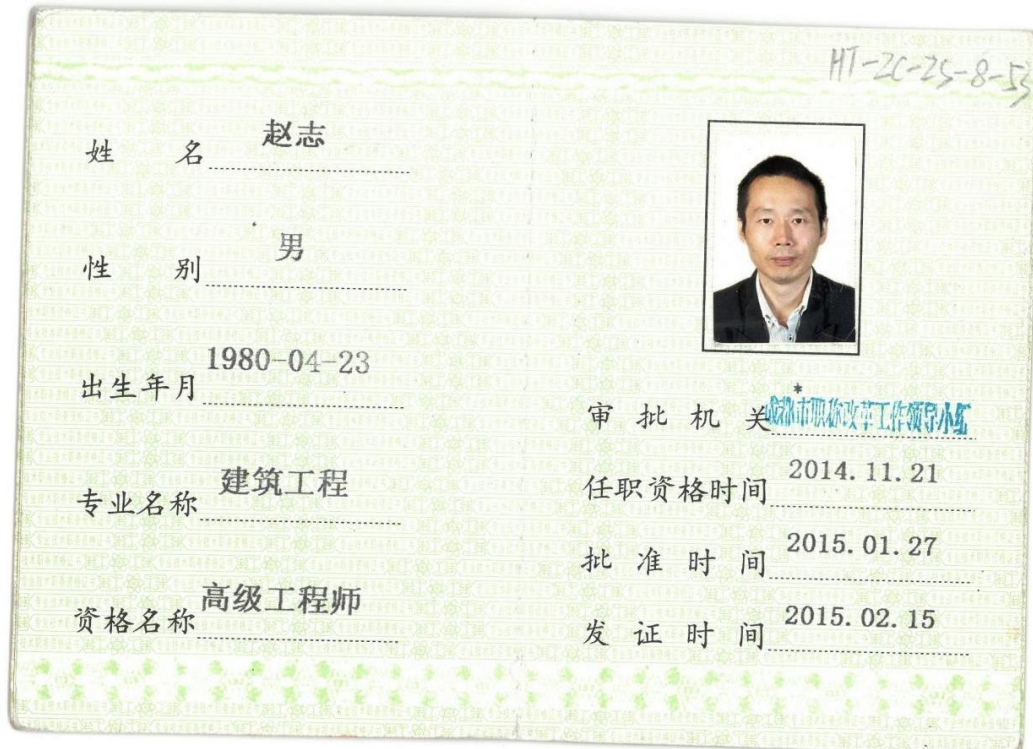 HT-ZC-ZS-8-53
姓 名 赵志
性 别 男
出生年月 1980-04-23
专业名称 建筑工程
资格名称 高级工程师
审批机关 成都市职称改革工作领导小组
任职资格时间 2014.11.21
批准时间 2015.01.27
发证时间 2015.02.15